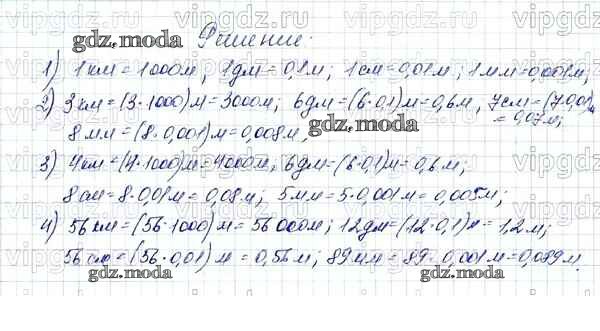 Решение:
1) 1км = 1000м; 1дм = 0,1м; 1см = 0,01м; 1мм = 0,001м;
2) 3км = (3·1000)м = 3000м; 6дм = (6·0,1)м = 0,6м, 7см = (7·0,01)м
= 0,07м;
8мм = (8·0,001)м = 0,008м,
3) 4км = (4·1000)м = 4000м; 6дм = (6·0,1)м = 0,6м;
8см = 8·0,01м = 0,08м; 5мм = 5·0,001м = 0,005м;
4) 56км = (56·1000)м = 56000м; 12дм = (12·0,1)м = 1,2м;
56см = (56·0,01)м = 0,56м; 89мм = 89·0,001м = 0,089м
gdz.moda
gdz.moda
gdz.moda
gdz.moda
vipgdz.ru